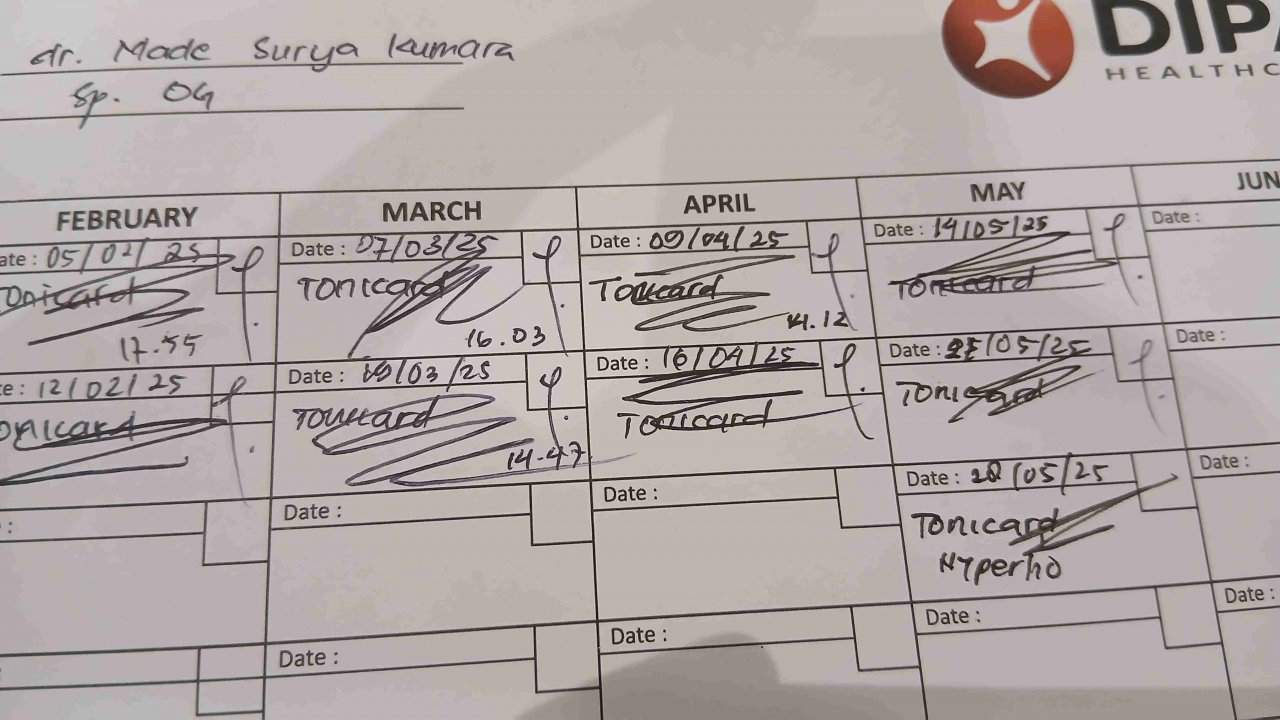 dr. Made Surya Kumara
Sp. OG
DIPA
HEALTHC
FEBRUARY
MARCH
APRIL
MAY
JUN
ate : 05/02/25
Date : 07/03/25
Date : 09/04/25
Date : 14/05/25
Date :
Tonicard
Tonicard
Tonicard
Tonicard
17.55
16.03
14.12
te : 12/02/25
Date : 19/03/25
Date : 16/04/25
Date : 21/05/25
Date :
onicard
Tonicard
Tonicard
Tonicard
14.47
:
Date :
Date :
Date : 28/05/25
Date :
Tonicard
Hyperho
Date :
Date :
Date :
Date :